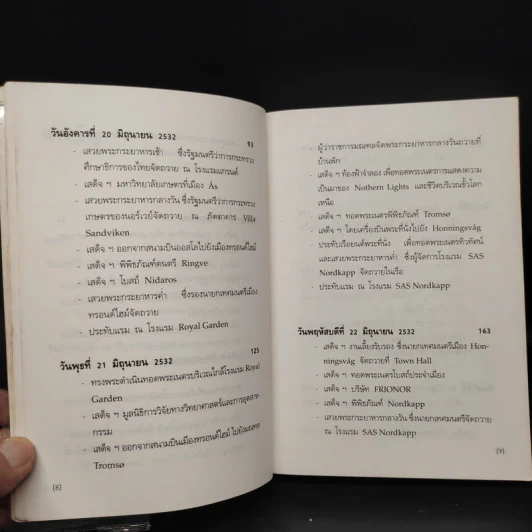 วันอังคารที่ 20 มิถุนายน 2532 93
- เสวยพระกระยาหารเช้า ซึ่งรัฐมนตรีว่าการกระทรวง
ศึกษาธิการของไทยจัดถวาย ณ โรงแรมแกรนด์
- เสด็จ ฯ มหาวิทยาลัยเกษตรที่เมือง Ås
- เสวยพระกระยาหารกลางวัน ซึ่งรัฐมนตรีว่าการกระทรวง
เกษตรของนอร์เวย์จัดถวาย ณ ภัตตาคาร Villa
Sandviken
- เสด็จ ฯ ออกจากสนามบินออสโลไปยังเมืองทรอนด์ไฮม์
- เสด็จ ฯ พิพิธภัณฑ์ดนตรี Ringve
- เสด็จ ฯ โบสถ์ Nidaros
- เสวยพระกระยาหารค่ำ ซึ่งรองนายกเทศมนตรีเมือง
ทรอนด์ไฮม์จัดถวาย
- ประทับแรม ณ โรงแรม Royal Garden
วันพุธที่ 21 มิถุนายน 2532 125
- ทรงพระดำเนินทอดพระเนตรบริเวณใกล้โรงแรม Royal
Garden
- เสด็จ ฯ มูลนิธิการวิจัยทางวิทยาศาสตร์และการอุตสาห-
กรรม
- เสด็จ ฯ ออกจากสนามบินเมืองทรอนด์ไฮม์ ไปยังเมือง
Tromsø
(8)
ผู้ว่าราชการมณฑลจัดพระกระยาหารกลางวันถวายที่
บ้านพัก
- เสด็จ ฯ ห้องฟ้าจำลอง เพื่อทอดพระเนตรการแสดงความ
เป็นมาของ Nothern Lights และชีวิตบริเวณขั้วโลก
เหนือ
- เสด็จ ฯ ทอดพระเนตรพิพิธภัณฑ์ Tromsø
- เสด็จ ฯ โดยเครื่องบินพระที่นั่งไปยัง Honningsvåg
- ประทับเรือยนต์พระที่นั่ง เพื่อทอดพระเนตรทิวทัศน์
และเสวยพระกระยาหารค่ำ ซึ่งผู้จัดการโรงแรม SAS
Nordkapp จัดถวายในเรือ
- ประทับแรม ณ โรงแรม SAS Nordkapp
วันพฤหัสบดีที่ 22 มิถุนายน 2532 163
- เสด็จ ฯ งานเลี้ยงรับรอง ซึ่งนายกเทศมนตรีเมือง Hon-
ningsvåg จัดถวายที่ Town Hall
- เสด็จ ฯ ทอดพระเนตรโบสถ์ประจำเมือง
- เสด็จ ฯ บริษัท FRIONOR
- เสด็จ ฯ พิพิธภัณฑ์ Nordkapp
- เสวยพระกระยาหารกลางวัน ซึ่งนายกเทศมนตรีจัดถวาย
ณ โรงแรม SAS Nordkapp
(9)